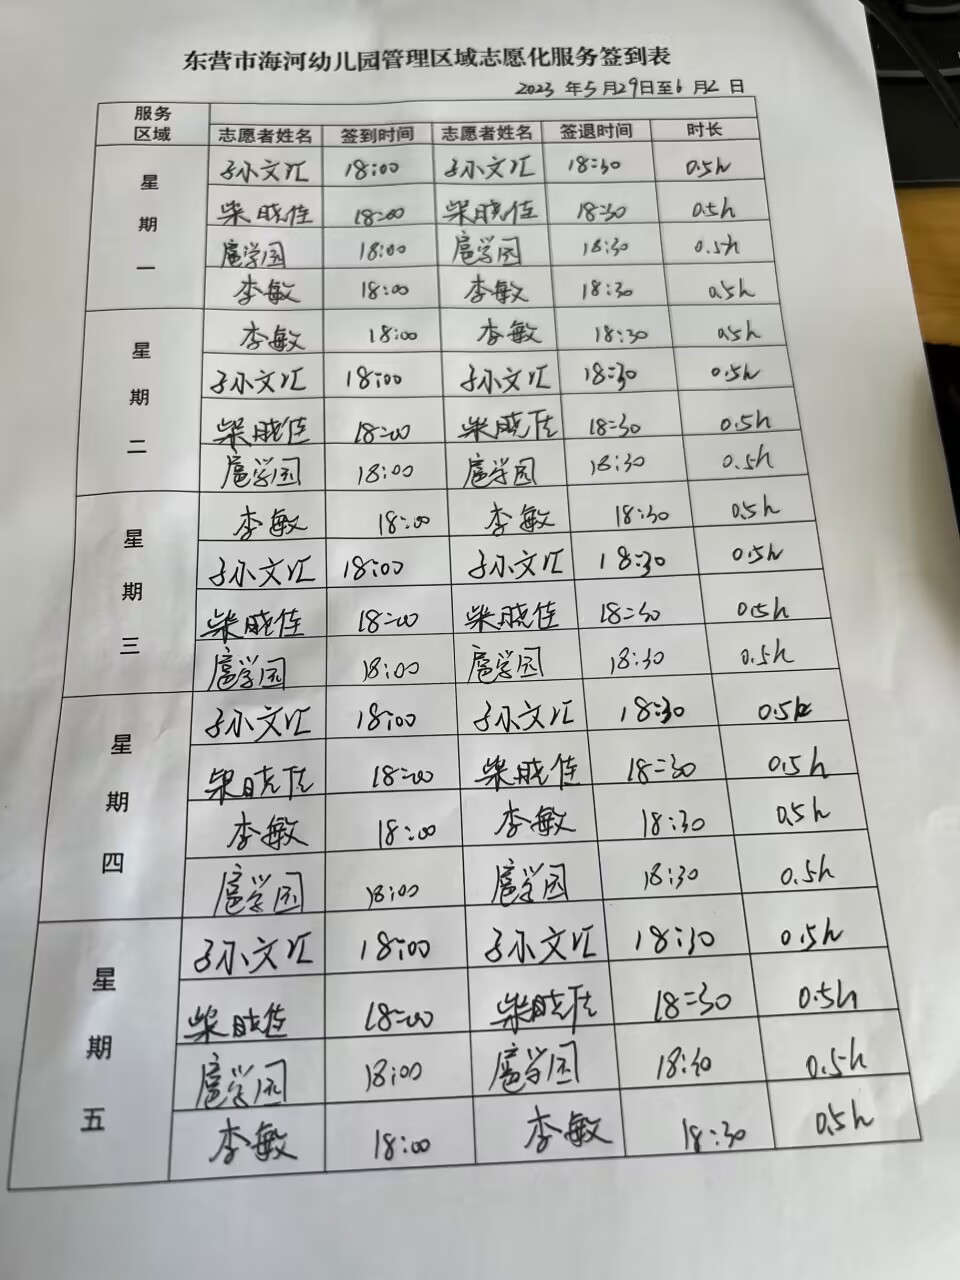 东营市海河幼儿园管理区域志愿化服务签到表
2023 年 5 月 29 日至 6 月 2 日
服务区域
志愿者姓名 签到时间 志愿者姓名 签退时间 时长
星期一
孙文汇 18:00 孙文汇 18:30 0.5h
柴晓佳 18:00 柴晓佳 18:30 0.5h
扈学园 18:00 扈学园 18:30 0.5h
李敏 18:00 李敏 18:30 0.5h
星期二
李敏 18:00 李敏 18:30 0.5h
孙文汇 18:00 孙文汇 18:30 0.5h
柴晓佳 18:00 柴晓佳 18:30 0.5h
扈学园 18:00 扈学园 18:30 0.5h
星期三
李敏 18:00 李敏 18:30 0.5h
孙文汇 18:00 孙文汇 18:30 0.5h
柴晓佳 18:00 柴晓佳 18:30 0.5h
扈学园 18:00 扈学园 18:30 0.5h
星期四
孙文汇 18:00 孙文汇 18:30 0.5h
柴晓佳 18:00 柴晓佳 18:30 0.5h
李敏 18:00 李敏 18:30 0.5h
扈学园 18:00 扈学园 18:30 0.5h
星期五
孙文汇 18:00 孙文汇 18:30 0.5h
柴晓佳 18:00 柴晓佳 18:30 0.5h
扈学园 18:00 扈学园 18:30 0.5h
李敏 18:00 李敏 18:30 0.5h